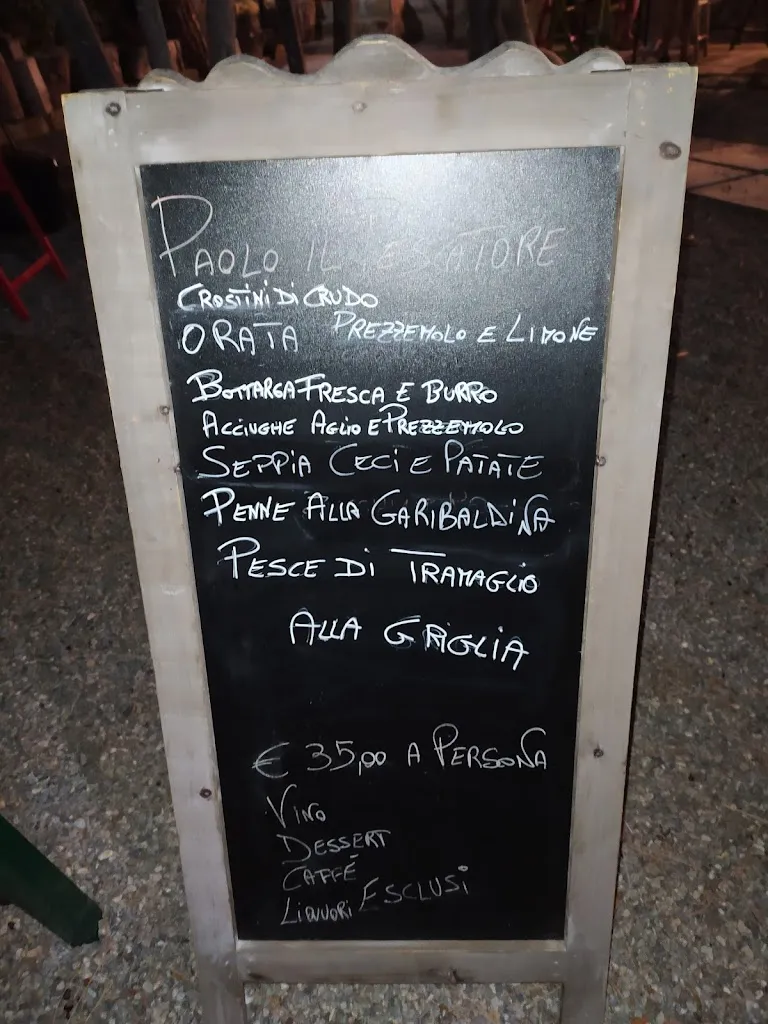 PAOLO IL PESCATORE
CROSTINI DI CRUDO
ORATA PREZZEMOLO E LIMONE
BOTTARGA FRESCA E BURRO
ACCIUGHE AGLIO E PREZZEMOLO
SEPPIA CECI E PATATE
PENNE ALLA GARIBALDINA
PESCE DI TRAMAGLIO
ALLA GRIGLIA
€ 35,00 A PERSONA
VINO
DESSERT
CAFFÈ
LIQUORI ESCLUSI